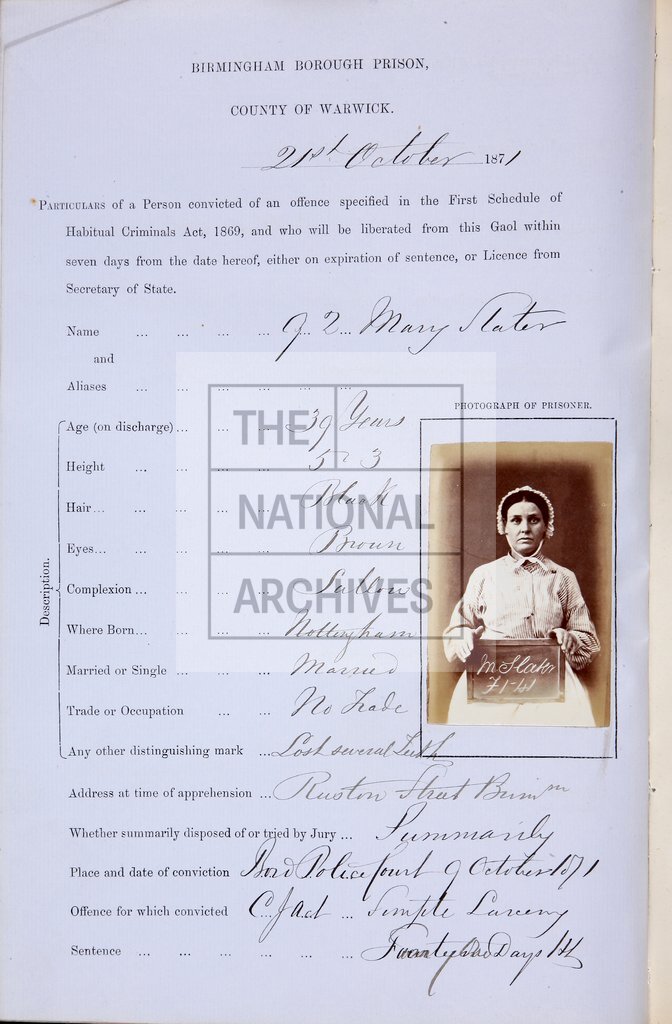 BIRMINGHAM BOROUGH PRISON,
COUNTY OF WARWICK.
21st October 1871
PARTICULARS of a Person convicted of an offence specified in the First Schedule of
Habitual Criminals Act, 1869, and who will be liberated from this Gaol within
seven days from the date hereof, either on expiration of sentence, or Licence from
Secretary of State.
Name ... ... ... ... 92 ... Mary Slater
and
Aliases ... ... ... ... ... ...
PHOTOGRAPH OF PRISONER.
Description.
Age (on discharge) ... ... ... 39 Years
Height ... ... ... ... 5 - 3
Hair ... ... ... ... Black
Eyes ... ... ... ... Brown
Complexion ... ... ... Sallow
Where Born ... ... ... Nottingham
Married or Single ... ... ... Married
Trade or Occupation ... ... No Trade
Any other distinguishing mark ... Lost several Teeth
M Slater
71-41
THE
NATIONAL
ARCHIVES
Address at time of apprehension ... Street Birmm
Whether summarily disposed of or tried by Jury ... Summarily
Place and date of conviction Boro Police Court 9 October 1871
Offence for which convicted C. J Act ... Simple Larceny
Sentence ... ... ... ... ... ... Days